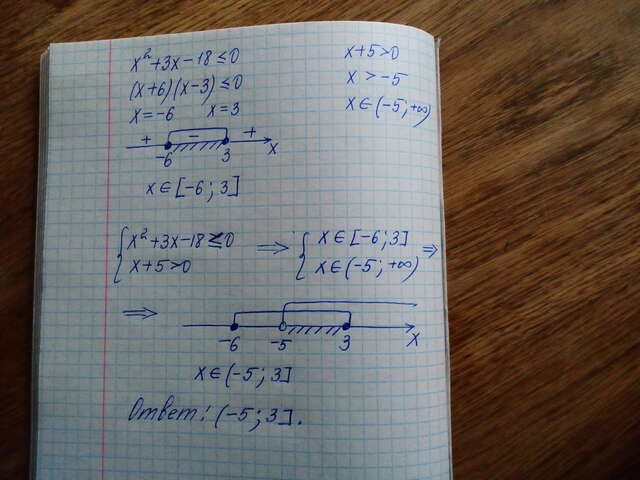 x²+3x-18≤0
(x+6)(x-3)≤0
x=-6 x=3
+ - +
-6 3 x
x∈[-6;3]
x+5>0
x>-5
x∈(-5;+∞)
{x²+3x-18≤0 ⇒ {x∈[-6;3] ⇒
x+5>0 x∈(-5;+∞)
⇒
-6 -5 3 x
x∈(-5;3]
Ответ: (-5;3].